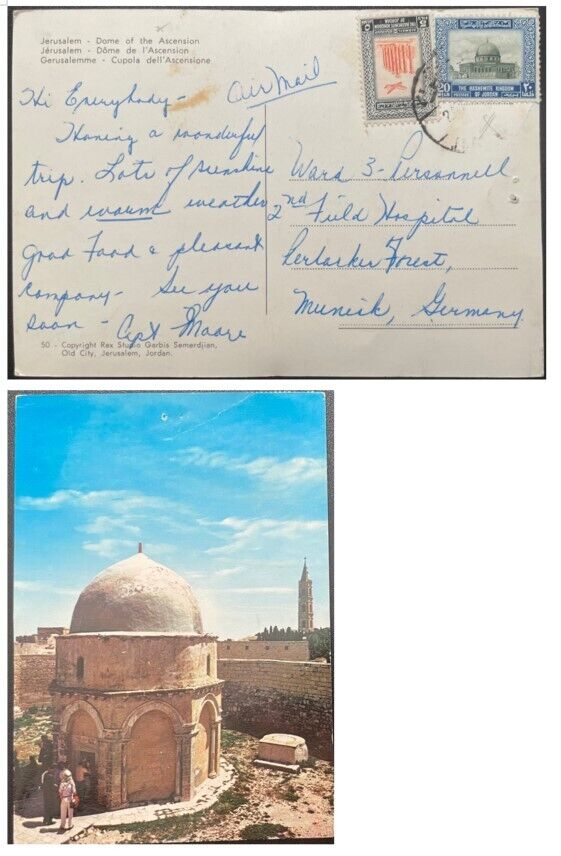 Jerusalem - Dome of the Ascension
Jérusalem - Dôme de l'Ascension
Gerusalemme - Cupola dell'Ascensione
Air Mail
Hi Everybody-
Having a wonderful
trip. Lots of sunshine
and warm weather
good Food & pleasant
company- See you
soon - Cpt Moore
50 - Copyright Rex Studio Garbis Semerdjian,
Old City, Jerusalem, Jordan.
THE HASHEMITE KINGDOM OF JORDAN
THE HASHEMITE KINGDOM
20 POSTAGE OF JORDAN
Ward 3- Personnell
2nd Field Hospital
Perlacker Forest,
Munich, Germany